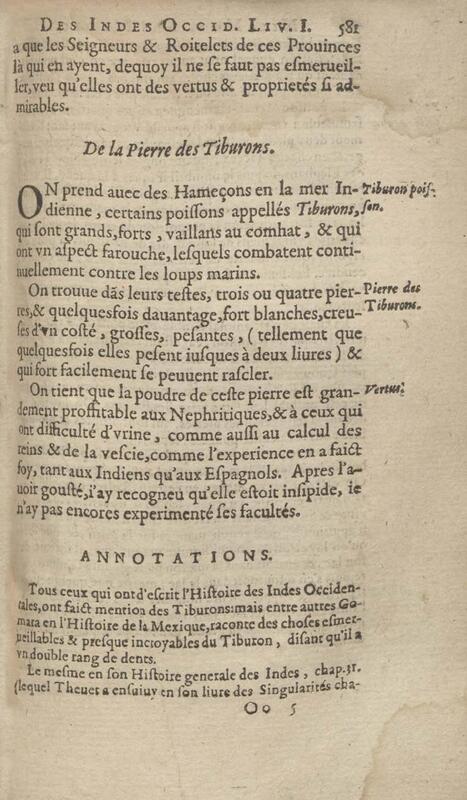 DES INDES OCCID. LIV. I. 581
a que les Seigneurs & Roitelets de ces Prouinces
là qui en ayent, dequoy il ne se faut pas esmerueil-
ler, veu qu'elles ont des vertus & proprietés si ad-
mirables.
De la Pierre des Tiburons.
ON prend auec des Hameçons en la mer In- Tiburon pois-
dienne, certains poissons appellés Tiburons, son.
qui sont grands, forts, vaillans au combat, & qui
ont vn aspect farouche, lesquels combatent conti-
nuellement contre les loups marins.
On trouue dãs leurs testes, trois ou quatre pier- Pierre des
res, & quelquesfois dauantage, fort blanches, creu- Tiburons.
ses d'vn costé, grosses, pesantes, (tellement que
quelquesfois elles pesent iusques à deux liures) &
qui fort facilement se peuuent rascler.
On tient que la poudre de ceste pierre est gran- Vertus.
dement proffitable aux Nephritiques, & à ceux qui
ont difficulté d'vrine, comme aussi au calcul des
reins & de la vescie, comme l'experience en a faict
foy, tant aux Indiens qu'aux Espagnols. Apres l'a-
uoir gousté, i'ay recogneu qu'elle estoit insipide, ie
n'ay pas encores experimenté ses facultés.
ANNOTATIONS.
Tous ceux qui ont d'escrit l'Histoire des Indes Occiden-
tales, ont faict mention des Tiburons: mais entre autres Go-
mara en l'Histoire de la Mexique, raconte des choses esmer-
ueillables & presque incroyables du Tiburon, disant qu'il a
vn double rang de dents.
Le mesme en son Histoire generale des Indes, chap. 31.
(lequel Theuet a ensuiuy en son liure des Singularités cha-
Oo 5